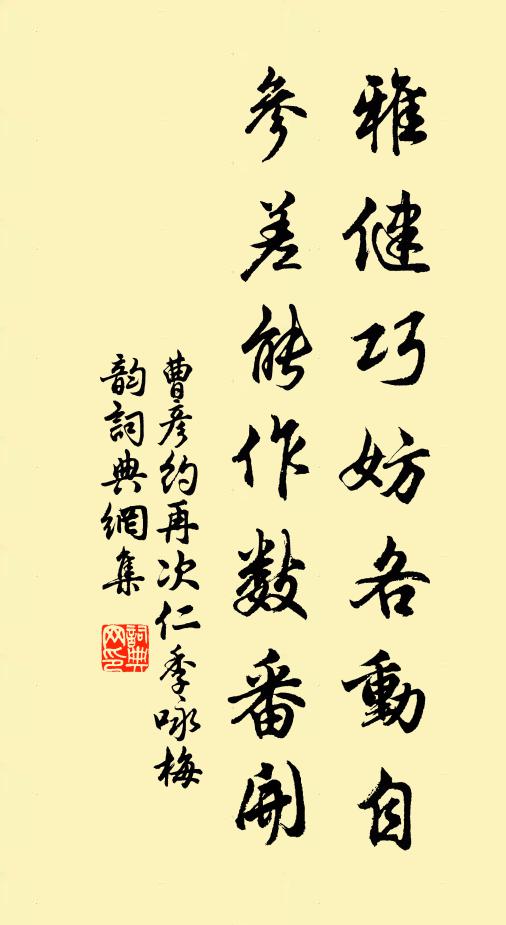 雅健巧妨各動自
參差能作数番開
曹彥約再次仁季咏梅
韵詞典網集
詞典
网印